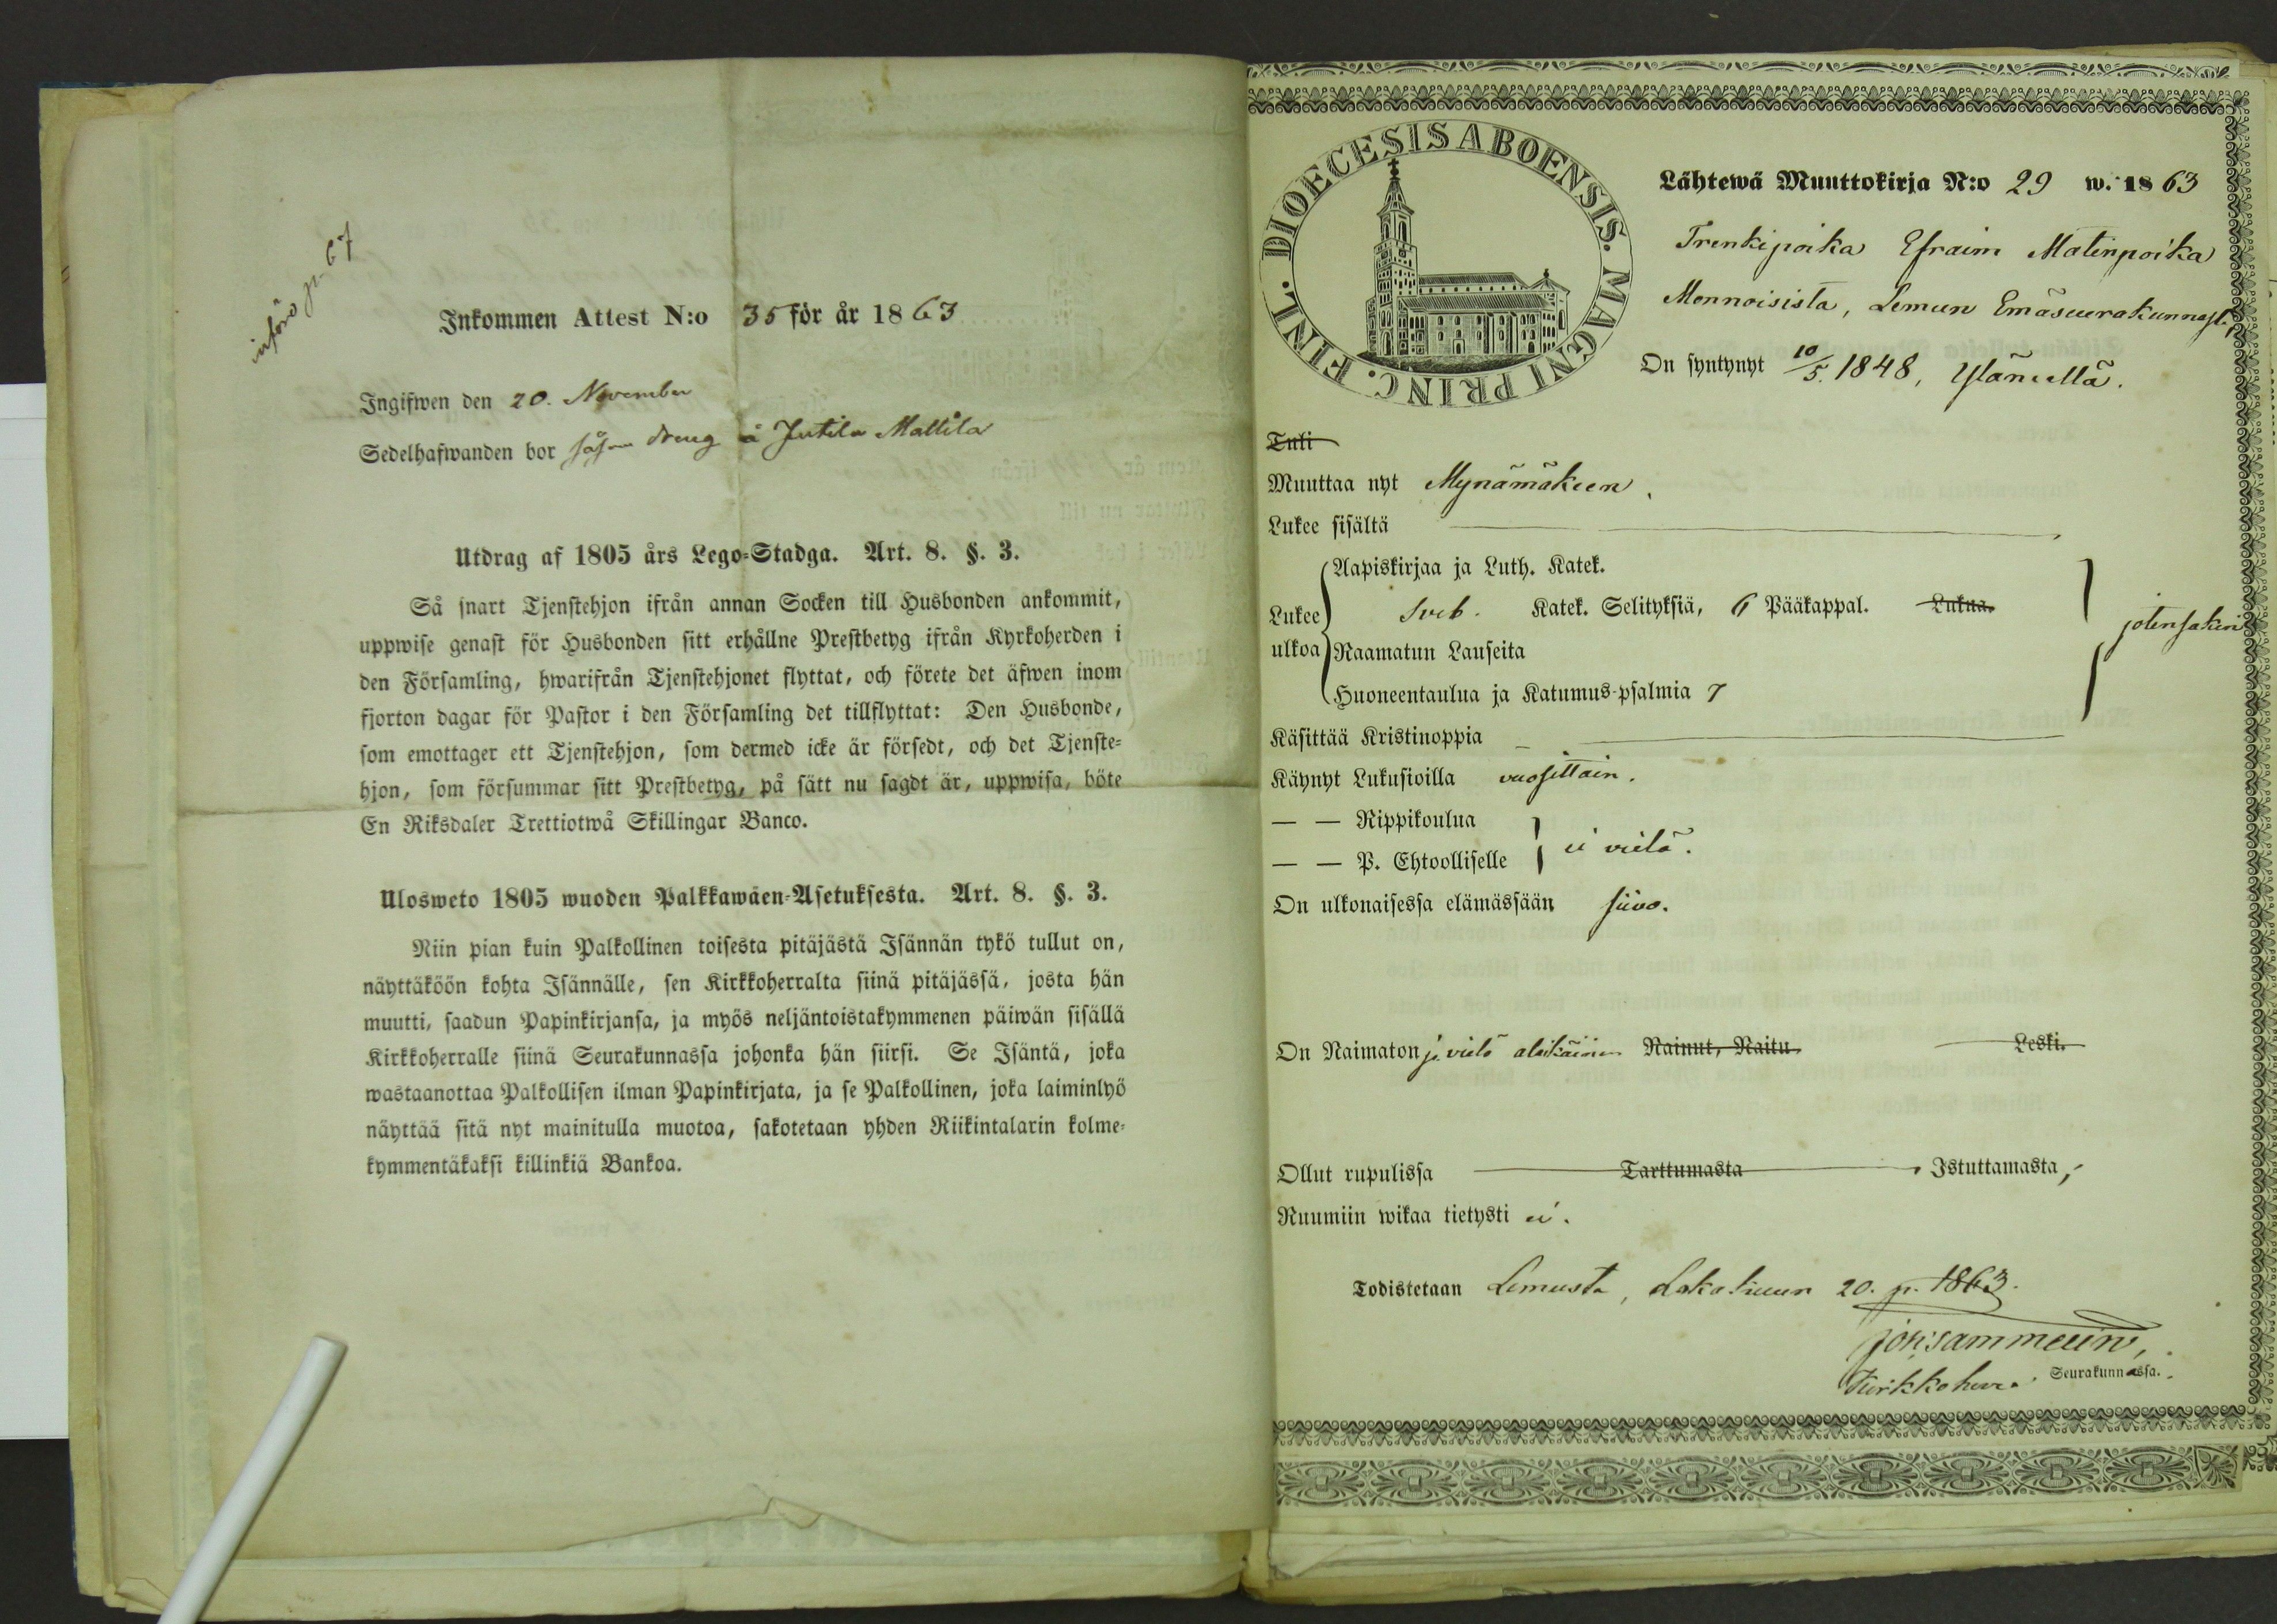 införd p. 67
Inkommen Attest N:o 35 för år 1863
Ingifwen den 20. November
Sedelhafwanden bor såsom dreng å Jutila Mattila
Utdrag af 1805 års Lego-Stadga. Art. 8. §. 3.
Så snart Tjenstehjon ifrån annan Socken till Husbonden ankommit,
uppwise genast för Husbonden sitt erhållne Prestbetyg ifrån Kyrkoherden i
den Församling, hwarifrån Tjenstehjonet flyttat, och förete det äfwen inom
fjorton dagar för Pastor i den Församling det tillflyttat: Den Husbonde,
som emottager ett Tjenstehjon, som dermed icke är försedt, och det Tjenste-
hjon, som försummar sitt Prestbetyg, på sätt nu sagdt är, uppwisa, böte
En Riksdaler Trettiotwå Skillingar Banco.
Ulosweto 1805 wuoden Palkkawäen-Asetuksesta. Art. 8. §. 3.
Niin pian kuin Palkollinen toisesta pitäjästä Isännän tykö tullut on,
näyttäköön kohta Isännälle, sen Kirkkoherralta siinä pitäjässä, josta hän
muutti, saadun Papinkirjansa, ja myös neljäntoistakymmenen päiwän sisällä
Kirkkoherralle siinä Seurakunnassa johonka hän siirsi. Se Isäntä, joka
wastaanottaa Palkollisen ilman Papinkirjata, ja se Palkollinen, joka laiminlyö
näyttää sitä nyt mainitulla muotoa, sakotetaan yhden Riikintalarin kolme-
kymmentäkaksi killinkiä Bankoa.
DIOECESIS ABOENSIS. MAGNI PRINC. FINL.
Lähtewä Muuttokirja N:o 29 w. 1863
Trenkipoika Efraim Matinpoika
Monnoisista, Lemun Emäseurakunnast,
On syntynyt 10/5. 1848, Yläneellä.
Tuli
Muuttaa nyt Mynämäkeen.
Lukee sisältä
Aapiskirjaa ja Luth. Katek.
Lukee ulkoa Sveb. Katek. Selityksiä, 6 Pääkappal. Lukua.
jotensakin
Raamatun Lauseita
Huoneentaulua ja Katumus-psalmia 7
Käsittää Kristinoppia
Käynyt Lukusioilla vuosittain.
— — Rippikoulua
— — P. Ehtoolliselle ei vielä.
On ulkonaisessa elämässään siivo.
On Naimaton ja vielä alaikäinen Nainut, Naitu Leski.
Ollut rupulissa Tarttumasta Istuttamasta,
Ruumiin wikaa tietysti ei.
Todistetaan Lemusta, Lokakuun 20. p. 1863.
Joh: Sammelin,
Kirkkoherra. Seurakunnassa.